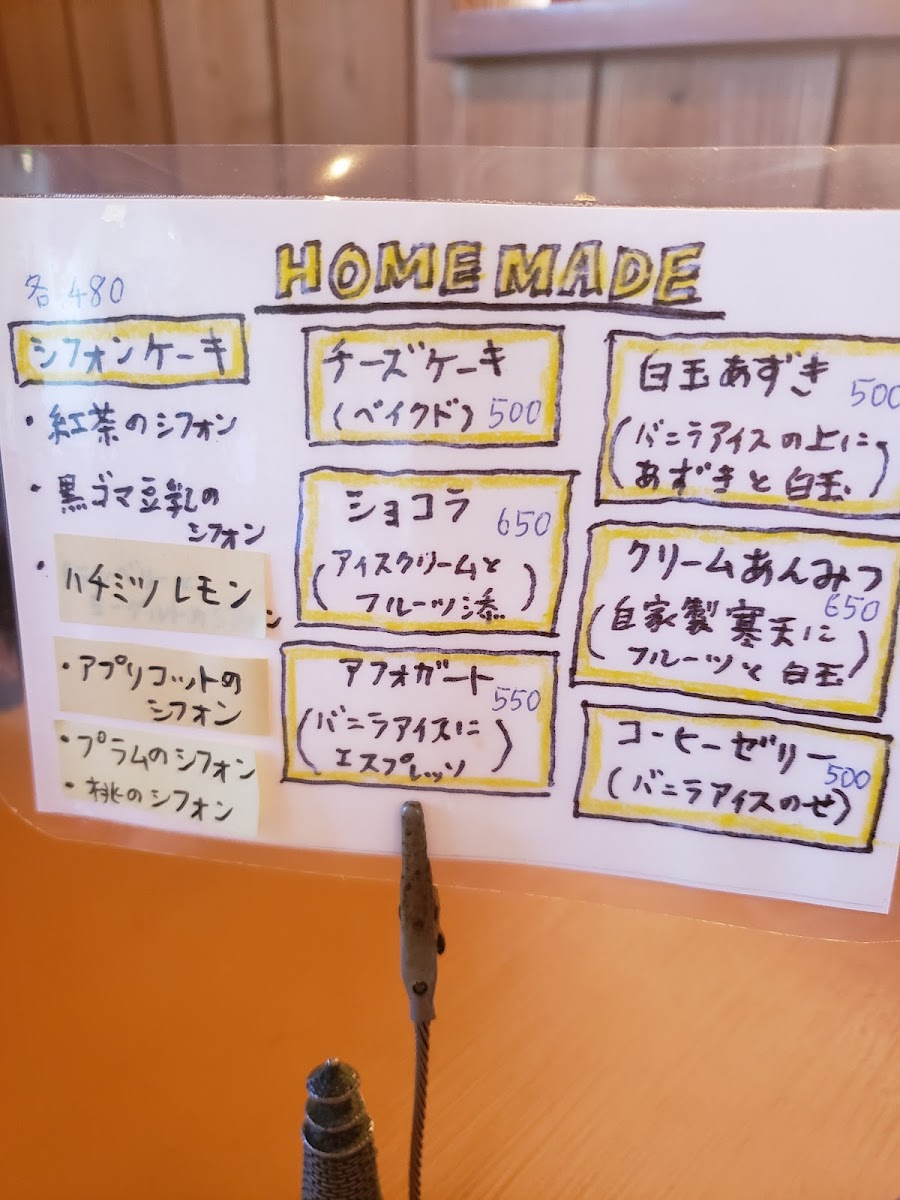 HOME MADE
各480
シフォンケーキ
・紅茶のシフォン
・黒ゴマ豆乳の
シフォン
・ハチミツレモン
ン
・アプリコットの
シフォン
・プラムのシフォン
・桃のシフォン
チーズケーキ
(ベイクド) 500
ショコラ
650
(アイスクリームと
フルーツ添)
アフォガート
550
(バニラアイスに
エスプレッソ)
白玉あずき
500
(バニラアイスの上に
あずきと白玉)
クリームあんみつ
650
(自家製寒天に
フルーツと白玉)
コーヒーゼリー
500
(バニラアイスのせ)